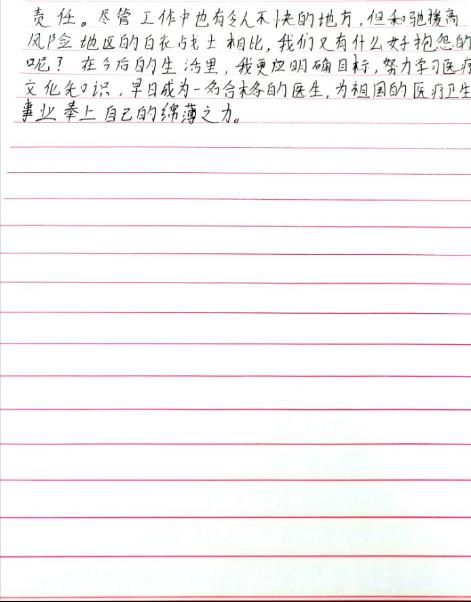 责任。尽管工作中也有令人不快的地方，但和驰援高
风险地区的白衣战士相比，我们又有什么好抱怨的
呢？在今后的生活里，我更应明确目标，努力学习医疗
文化知识，早日成为一名合格的医生，为祖国的医疗卫生
事业奉上自己的绵薄之力。